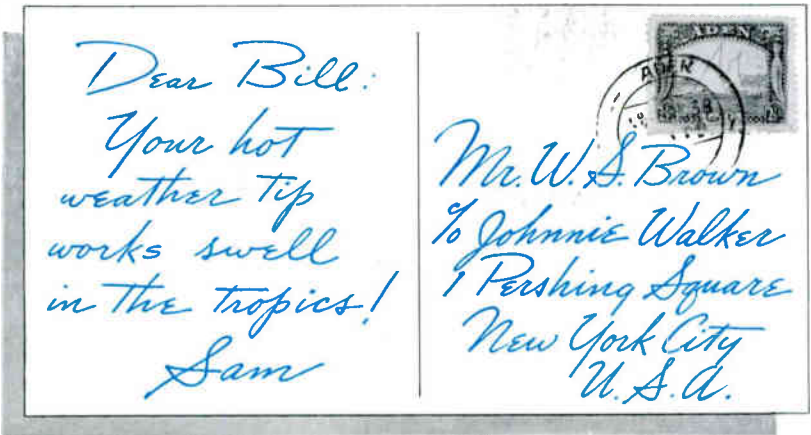 Dear Bill:
Your hot
weather tip
works swell
in the tropics!
Sam
ADEN
ADEN
Mr. W. S. Brown
% Johnnie Walker
1 Pershing Square
New York City
U. S. A.